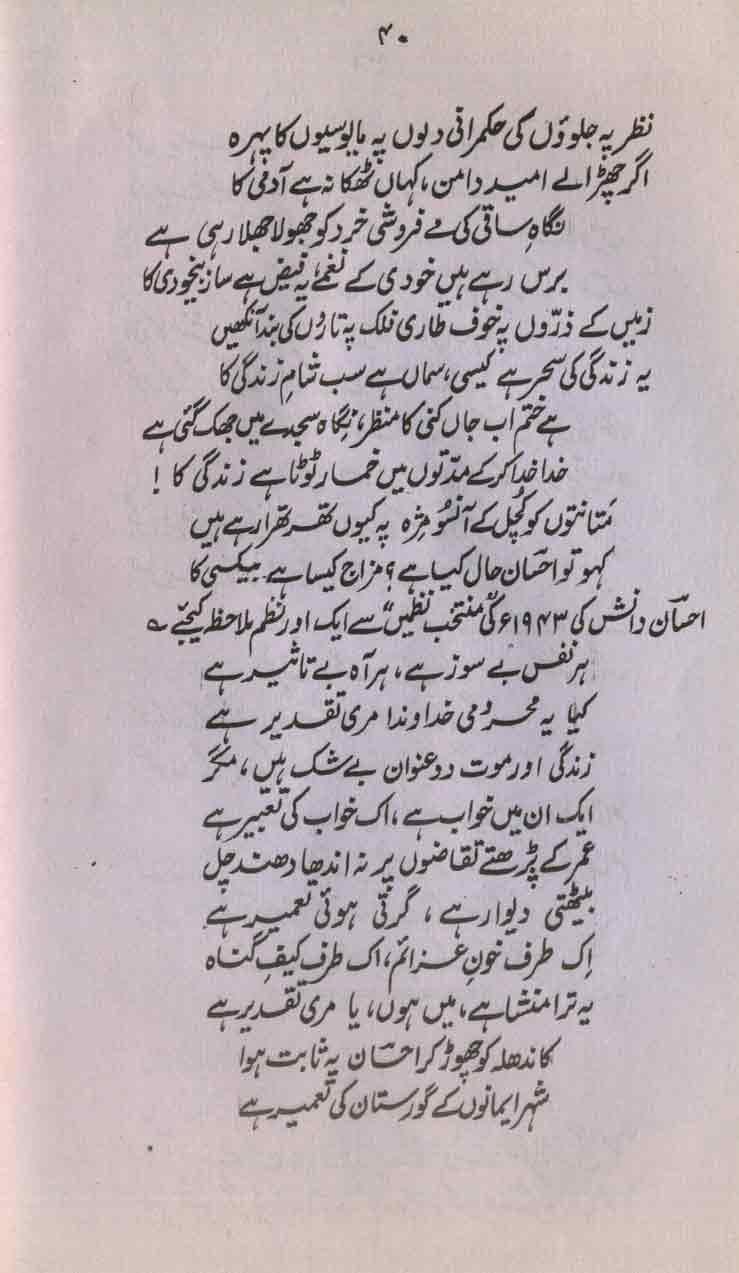 ۴۰
نظر پہ جلوؤں کی حکمرانی دلوں پہ مایوسیوں کا پہرہ
اگر چھڑالے امید دامن، کہاں ٹھکانہ ہے آدمی کا
نگاہِ ساقی کی مے فروشی خرد کو جھولا جھلا رہی ہے
برس رہے ہیں خودی کے نغمے یہ فیض ہے ساز بیخودی کا
زمیں کے ذرّوں پہ خوف طاری فلک پہ تاروں کی بند آنکھیں
یہ زندگی کی سحر ہے کیسی، سماں ہے سب شامِ زندگی کا
ہے ختم اب جاں کنی کا منظر، نگاہ سجدے میں جھک گئی ہے
خدا خدا کر کے مدّتوں میں خمار ٹوٹا ہے زندگی کا !
متانتوں کو کُچل کے آنسو مِژہ پہ کیوں تھر تھرا رہے ہیں
کہو تو احسان حال کیا ہے؟ مزاج کیسا ہے بیکسی کا
احسان دانش کی ۱۹۴۳ء کی "منتخب نظمیں" سے ایک اور نظم ملاحظہ کیجیے ؎
ہر نفس بے سوز ہے، ہر آہ بے تاثیر ہے
کیا یہ محرومی خداوندا مری تقدیر ہے
زندگی اور موت دو عنوان بے شک ہیں، مگر
ایک ان میں خواب ہے، اک خواب کی تعبیر ہے
عمر کے پڑھتے تقاضوں پر نہ اندھا دھند چل
بیٹھتی دیوار ہے، گرتی ہوئی تعمیر ہے
اِک طرف خونِ عزائم، اک طرف کیفِ گناہ
یہ ترا منشا ہے، میں ہوں، یا مری تقدیر ہے
کاندھلہ کو چھوڑ کر احسان یہ ثابت ہوا
شہر ایمانوں کے گورستان کی تعمیر ہے